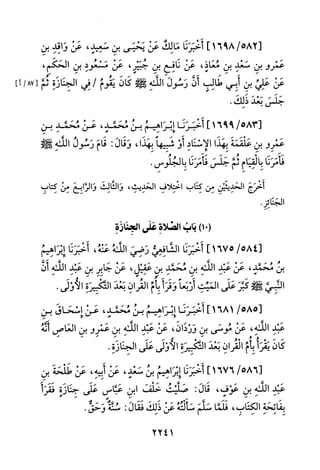 [١٦٩٨/٥٨٢] أَخْبَرَنَا مَالِكٌ عَنْ يَحْيَى بنِ سَعِيدٍ، عَنْ وَاقِدِ بنِ
عَمْرِو بن سَعْدِ بنِ مُعَاذٍ، عَنْ نَافِعِ بن جُبَيْرٍ، عَنْ مَسْعُودِ بنِ الحَكَمِ،
عَنْ عَلِيِّ بن أَبِي طَالِبٍ أَنَّ رَسُولَ اللَّهِ ﷺ كَانَ يَقُومُ / في الجنَازَةِ ثُمَّ [٨٧/أ]
جَلَسَ بَعْدَ ذَلِكَ.
[١٦٩٩/٥٨٣] أَخْبَرَنَا إِبْرَاهِيمُ بنُ مُحَمَّدٍ، عَنْ مُحَمَّدِ بنِ
عَمْرِو بن عَلْقَمَةَ بِهَذَا الإِسْنَادِ أَوْ شَبِيهاً بِهَذَا، وَقَالَ: قَامَ رَسُولُ اللَّهِ ﷺ
فَأَمَرَنَا بِالْقِيَامِ ثُمَّ جَلَسَ فَأَمَرَنَا بِالجُلُوسِ.
أَخْرَجَ الحَدِيثَيْنِ مِن كِتَابِ اخْتِلافِ الحَدِيثِ، وَالثَّالِثَ وَالرَّابِعَ مِنْ كِتَابِ
الجَنَائِزِ.
(١٠) بَابُ الصَّلاةِ عَلَى الجنَازَةِ
[١٦٧٥/٥٨٤] أَخْبَرَنَا الشَّافِعِيُّ رَضِيَ اللَّهُ عَنْهُ، أَخْبَرَنَا إِبْرَاهِيمُ
بنُ مُحَمَّدٍ، عَنْ عَبْدِ اللَّهِ بنِ مُحَمَّدِ بن عَقِيْلٍ، عَنْ جَابِرِ بنِ عَبْدِ اللَّهِ أَنَّ
النَّبِيَّ ﷺ كَبَّرَ عَلَى المَيِّتِ أَرْبَعاً وَقَرَأَ بِأُمِّ القُرآنِ بَعْدَ التَّكْبِيرَةِ الأُوْلَى.
[١٦٨١/٥٨٥] أَخْبَرَنَا إِبْرَاهِيمُ بنُ مُحَمَّدٍ، عَنْ إِسْحَاقَ بنِ
عَبْدِ اللَّهِ، عَنْ مُوسَى بنِ وَرْدَانَ، عَنْ عَبْدِ اللَّهِ بنِ عَمْرِو بن العَاصِ أَنَّهُ
كَانَ يَقْرَأُ بِأُمِّ القُرآنِ بَعْدَ التَّكْبِيرَةِ الأُوْلَى عَلَى الجِنَازَةِ.
[١٦٧٦/٥٨٦] أَخْبَرَنَا إِبْرَاهِيمُ بنُ سَعْدٍ، عَنْ أَبِيهِ، عَنْ طَلْحَةَ بنِ
عَبْدِ اللَّهِ بنِ عَوْفٍ، قَالَ: صَلَّيْتُ خَلْفَ ابنِ عَبَّاسٍ عَلَى جِنَازَةٍ فَقَرَأَ
بِفَاتِحَةِ الكِتَابِ، فَلَمَّا سَلَّمَ سَأَلْتُهُ عَنْ ذَلِكَ فَقَالَ: سُنَّةٌ وَحَقٌّ.
٢٢٤١